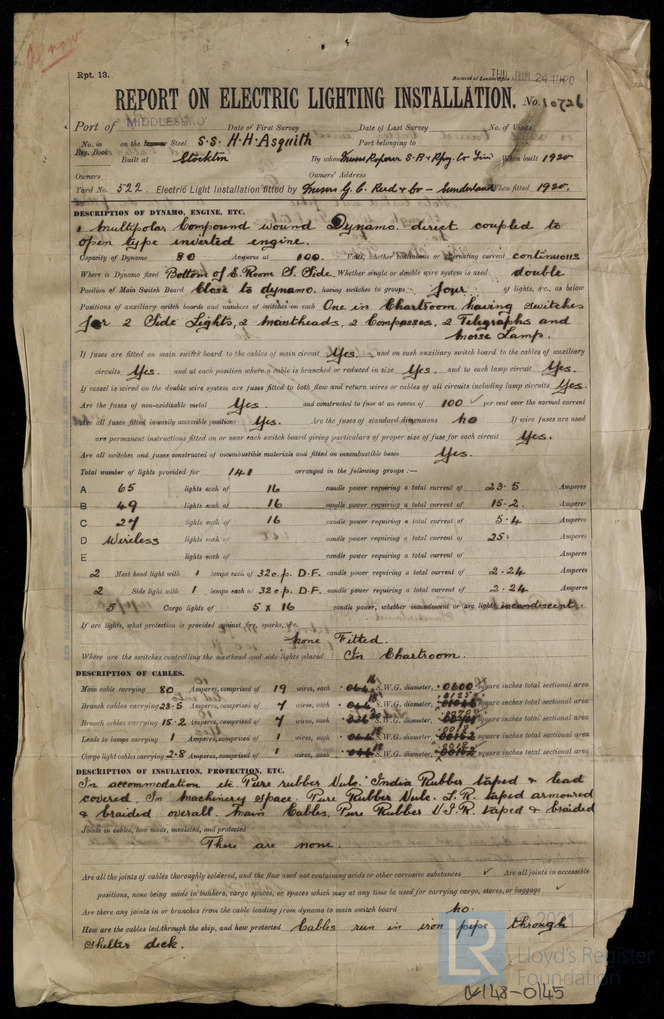 Rpt. 13.
Received at London Office THU. JUN 24 1920
REPORT ON ELECTRIC LIGHTING INSTALLATION. No. 10726
Port of MIDDLESBRO' Date of First Survey Date of Last Survey No. of Visits
No. in Reg. Book on the Steel S.S. H. H. Asquith Port belonging to
Built at Stockton By whom Ropner S.B & Rpg. Co Lim When built 1920
Owners Owners' Address
Yard No. 522 Electric Light Installation fitted by Messrs G. C. Reed & Co - Sunderland When fitted 1920.
DESCRIPTION OF DYNAMO, ENGINE, ETC.
1 Multipolar Compound wound Dynamo direct coupled to
open type inverted engine.
Capacity of Dynamo 80 Amperes at 100 Volts, whether continuous or alternating current continuous
Where is Dynamo fixed Bottom of E. Room S. Side. Whether single or double wire system is used double
Position of Main Switch Board Close to dynamo. having switches to groups four of lights, &c., as below
Positions of auxiliary switch boards and numbers of switches on each One in Chartroom having switches
for 2 Side Lights, 2 Mastheads, 2 Compasses, 2 Telegraphs and
Morse Lamp.
If fuses are fitted on main switch board to the cables of main circuit Yes. and on each auxiliary switch board to the cables of auxiliary
circuits Yes. and at each position where a cable is branched or reduced in size Yes. and to each lamp circuit Yes.
If vessel is wired on the double wire system are fuses fitted to both flow and return wires or cables of all circuits including lamp circuits Yes.
Are the fuses of non-oxidizable metal Yes. and constructed to fuse at an excess of 100 ✓ per cent over the normal current
Are all fuses fitted in easily accessible positions Yes. Are the fuses of standard dimensions no If wire fuses are used
are permanent instructions fitted on or near each switch board giving particulars of proper size of fuse for each circuit Yes.
Are all switches and fuses constructed of incombustible materials and fitted on incombustible bases Yes.
Total number of lights provided for 141 arranged in the following groups :—
A 65 lights each of 16 candle power requiring a total current of 23.5 Amperes
B 49 lights each of 16 candle power requiring a total current of 15.2. Amperes
C 27 lights each of 16 candle power requiring a total current of 5.4 Amperes
D Wireless lights each of candle power requiring a total current of 25. Amperes
E lights each of candle power requiring a total current of Amperes
2 Mast head light with 1 lamps each of 32 c.p. D.F. candle power requiring a total current of 2.24 Amperes
2 Side light with 1 lamps each of 32 c.p. D.F. candle power requiring a total current of 2.24 Amperes
5 Cargo lights of 5 x 16 candle power, whether incandescent or arc lights incandescent.
If arc lights, what protection is provided against fire, sparks, &c.
None Fitted.
Where are the switches controlling the masthead and side lights placed In Chartroom.
DESCRIPTION OF CABLES.
Main cable carrying 80 Amperes, comprised of 19 wires, each 16 S.W.G. diameter, .0600 square inches total sectional area
Branch cables carrying 23.5 Amperes, comprised of 7 wires, each S.W.G. diameter, square inches total sectional area
Branch cables carrying 15.2 Amperes, comprised of 7 wires, each S.W.G. diameter, square inches total sectional area
Leads to lamps carrying 1 Amperes, comprised of 1 wires, each 18 S.W.G. diameter, square inches total sectional area
Cargo light cables carrying 2.8 Amperes, comprised of 1 wires, each S.W.G. diameter, square inches total sectional area
DESCRIPTION OF INSULATION, PROTECTION, ETC.
In accommodation etc Pure rubber Vulc: India Rubber taped & lead
covered. In Machinery space. Pure Rubber Vulc. I.R. taped armoured
& braided overall. Main Cables. Pure Rubber V.I.R. taped & braided
Joints in cables, how made, insulated, and protected
There are none.
Are all the joints of cables thoroughly soldered, and the flux used not containing acids or other corrosive substances ✓ Are all joints in accessible
positions, none being made in bunkers, cargo spaces, or spaces which may at any time be used for carrying cargo, stores, or baggage ✓
Are there any joints in or branches from the cable leading from dynamo to main switch board no.
How are the cables led through the ship, and how protected Cables run in iron pipe through
Shelter deck.
2021
LR
Lloyd's Register
Foundation
W148-0145